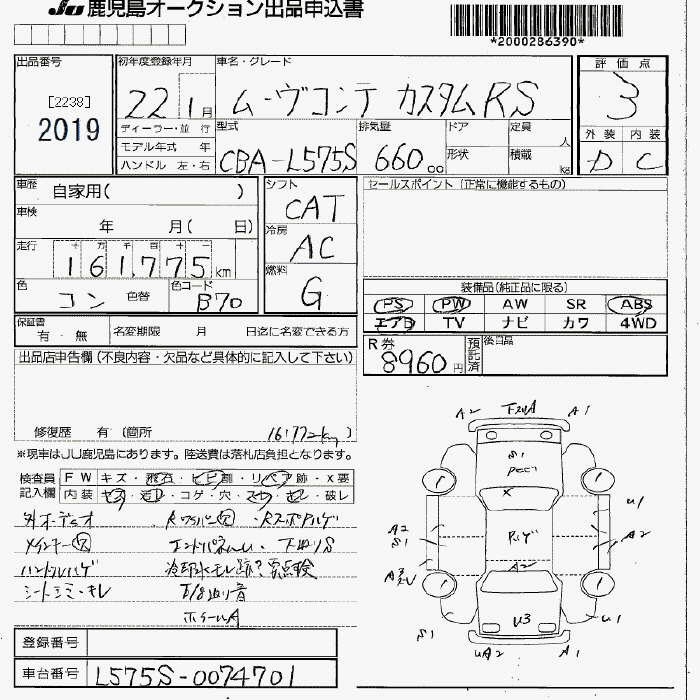 JU 鹿児島オークション出品申込書
*2000286390*
出品番号
[2238]
2019
初年度登録年月
22 1月
ディーラー・並行
モデル年式 年
ハンドル 左・右
車名・グレード
ムーヴコンテ カスタムRS
型式
CBA-L575S
排気量
660.00
ドア
形状
定員 人
積載 kg
評価点
3
外装 内装
D C
車歴 自家用( )
車検 年 月( 日)
走行 十 万 千 百 十 一
161,775km
色 コン 色替
色コード B70
シフト
CAT
冷房
AC
燃料
G
セールスポイント(正常に機能するもの)
装備品(純正品に限る)
PS PW AW SR ABS
エアB TV ナビ カワ 4WD
保証書 有・無
名変期限 月 日迄に名変できる方
R券 8960円
預託済
後日品
出品店申告欄(不良内容・欠品など具体的に記入して下さい)
修復歴 有(箇所 )
16,172km
※現車はJU鹿児島にあります。陸送費は落札店負担となります。
検査員記入欄
FW キズ・飛石・ヒビ割・リペア跡・X要
内装 キズ・ヨゴレ・コゲ・穴・スレ・キレ・破レ
外オーディオ
メインキー欠
ハンドルハゲ
シートシミ・キレ
Rワイパー欠・Rスポアルゲ
冷却水モレ跡?要点検
E/g廻り音
ホイールA
A2 下スリA A1
S1
X
Rハゲ
A2
U1
A2
S1
A2
U3
S1
U1
UA2 A1
登録番号
車台番号 L575S-0074701